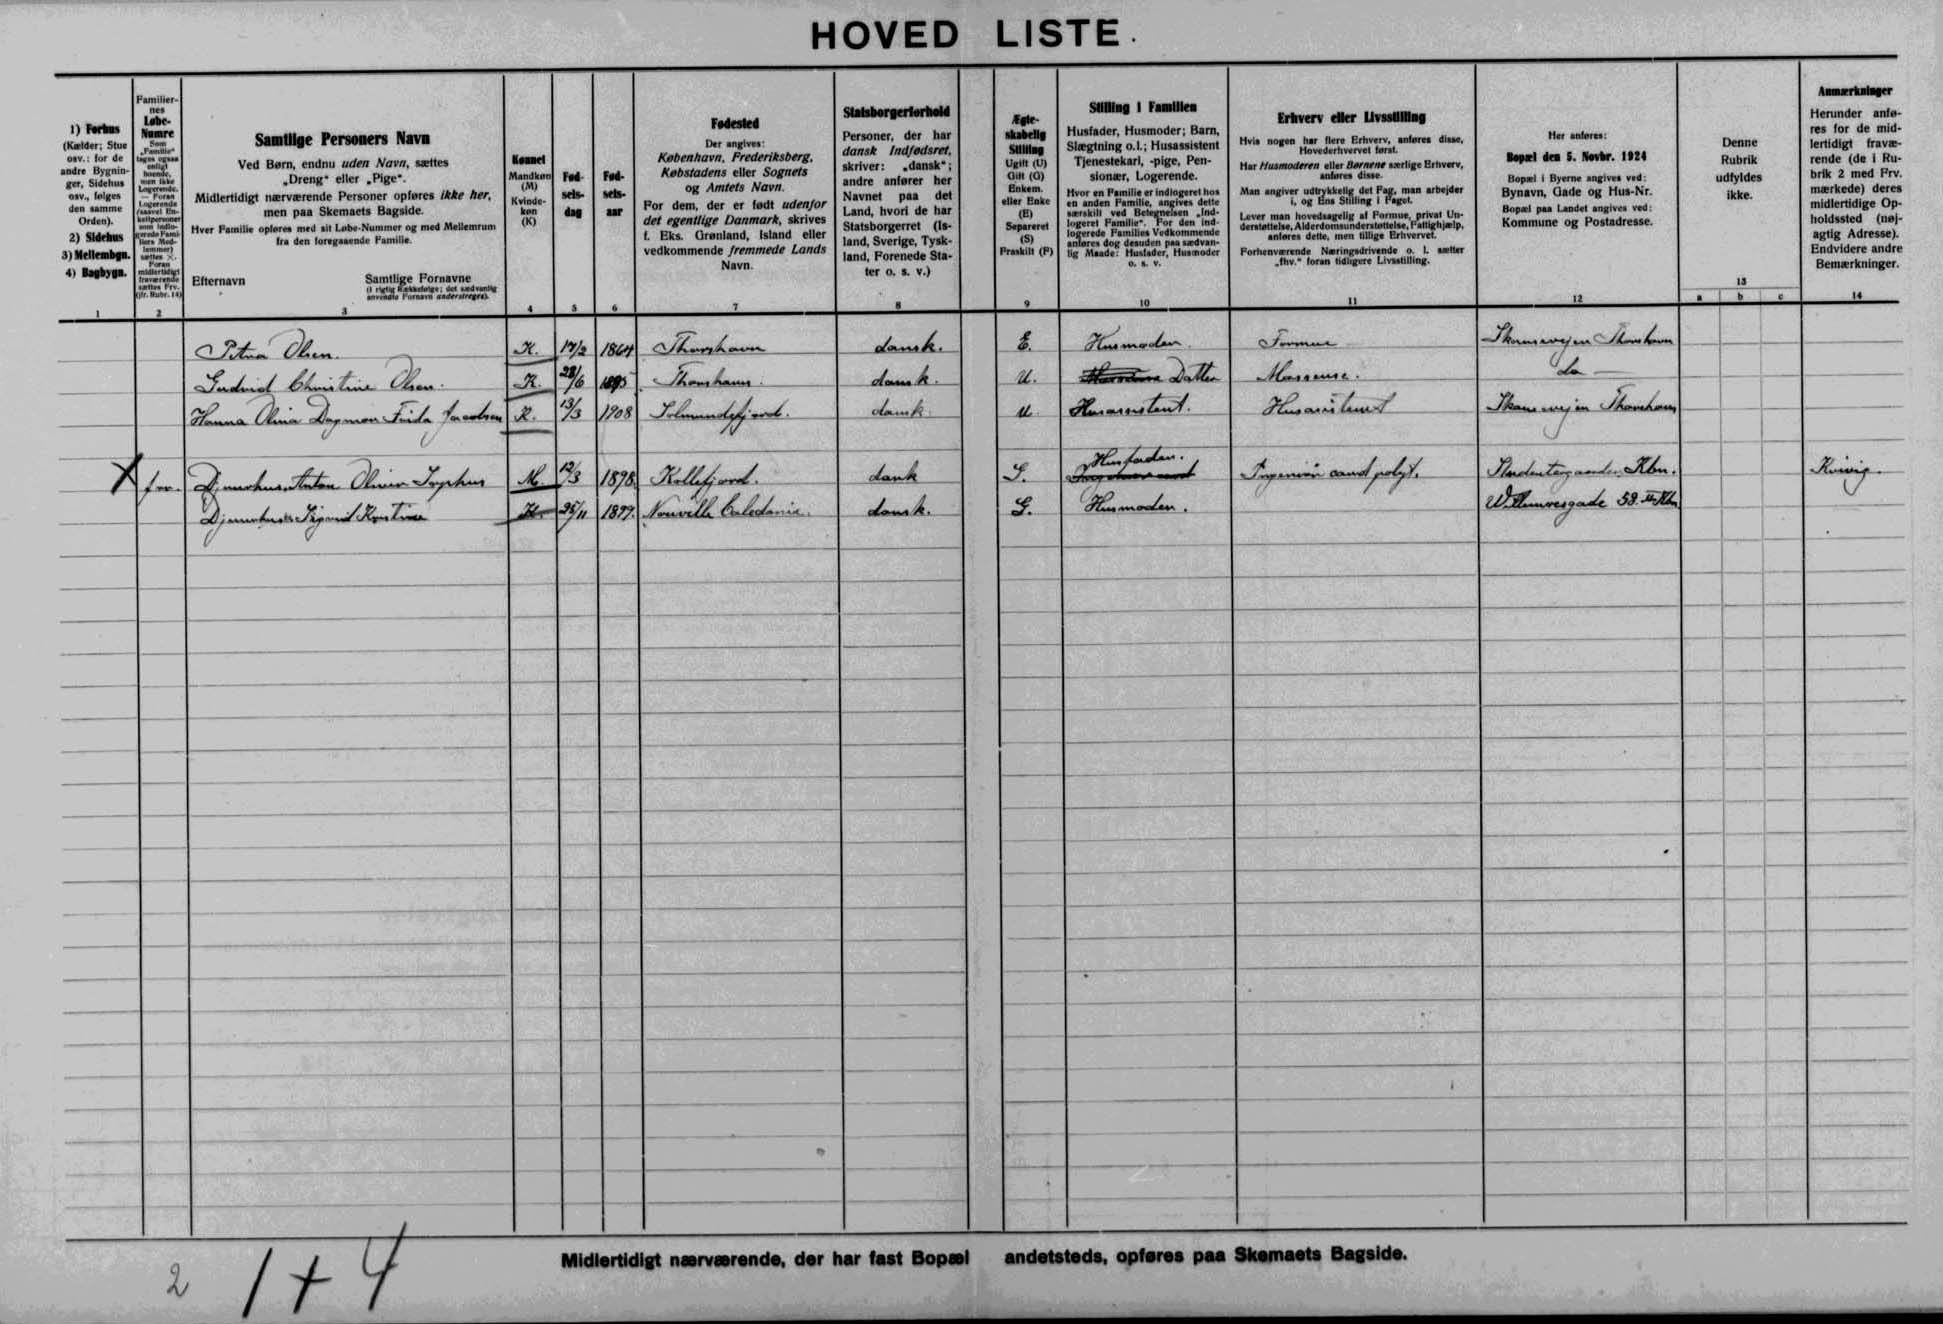 HOVED LISTE.
1) Forhus
(Kælder; Stue
osv.: for de
andre Bygnin-
ger, Sidehus
osv., følges
den samme
Orden).
2) Sidehus
3) Mellembgn.
4) Bagbygn.
1
Familier-
nes
Løbe-
Numre
Som
„Familie“
tages ogsaa
enligt
boende,
men ikke
Logerende.
— Foran
Logerende
(saavel En-
keltpersoner
som indlo-
gerede Fami-
liers Med-
lemmer)
sættes ×.
Foran
midlertidigt
fraværende
sættes Frv.
(jfr. Rubr. 14)
2
Samtlige Personers Navn
Ved Børn, endnu uden Navn, sættes
„Dreng“ eller „Pige“.
Midlertidigt nærværende Personer opføres ikke her,
men paa Skemaets Bagside.
Hver Familie opføres med sit Løbe-Nummer og med Mellemrum
fra den foregaaende Familie.
Efternavn Samtlige Fornavne
(i rigtig Rækkefølge; det sædvanlig
anvendte Fornavn understreges).
3
Kønnet
Mandkøn
(M)
Kvinde-
køn
(K)
4
Fød-
sels-
dag
5
Fød-
sels-
aar
6
Fødested
Der angives:
København, Frederiksberg,
Købstadens eller Sognets
og Amtets Navn.
For dem, der er født udenfor
det egentlige Danmark, skrives
f. Eks. Grønland, Island eller
vedkommende fremmede Lands
Navn.
7
Statsborgerforhold
Personer, der har
dansk Indfødsret,
skriver: „dansk“;
andre anfører her
Navnet paa det
Land, hvori de har
Statsborgerret (Is-
land, Sverige, Tysk-
land, Forenede Sta-
ter o. s. v.)
8
Ægte-
skabelig
Stilling
Ugift (U)
Gift (G)
Enkem.
eller Enke
(E)
Separeret
(S)
Fraskilt (F)
9
Stilling i Familien
Husfader, Husmoder; Barn,
Slægtning o.l.; Husassistent
Tjenestekarl, -pige, Pen-
sionær, Logerende.
Hvor en Familie er indlogeret hos
en anden Familie, angives dette
særskilt ved Betegnelsen „Ind-
logeret Familie“. For den ind-
logerede Families Vedkommende
anføres dog desuden paa sædvan-
lig Maade: Husfader, Husmoder
o. s. v.
10
Erhverv eller Livsstilling
Hvis nogen har flere Erhverv, anføres disse,
Hovederhvervet først.
Har Husmoderen eller Børnene særlige Erhverv,
anføres disse.
Man angiver udtrykkelig det Fag, man arbejder
i, og Ens Stilling i Faget.
Lever man hovedsagelig af Formue, privat Un-
derstøttelse, Alderdomsunderstøttelse, Fattighjælp,
anføres dette, men tillige Erhvervet.
Forhenværende Næringsdrivende o. l. sætter
„fhv.“ foran tidligere Livsstilling.
11
Her anføres:
Bopæl den 5. Novbr. 1924
Bopæl i Byerne angives ved:
Bynavn, Gade og Hus-Nr.
Bopæl paa Landet angives ved:
Kommune og Postadresse.
12
Denne
Rubrik
udfyldes
ikke.
13
a b c
Anmærkninger
Herunder anfø-
res for de mid-
lertidigt fravæ-
rende (de i Ru-
brik 2 med Frv.
mærkede) deres
midlertidige Op-
holdssted (nøj-
agtig Adresse).
Endvidere andre
Bemærkninger.
14
Petra Olsen. K. 17/2 1864 Thorshavn dansk. E. Husmoder. Formue Skansevejen Thorshavn
Gudrid Christine Olsen. K. 28/6 1895 Thorshavn. dansk. U. Datter Masseuse. do —
Hanna Olina Dagmar Frida Jacobsen K. 13/3 1908 Solmundefjord. dansk. U. Husassistent. Husassistent Skansevejen Thorshavn
× frv. Djurhuus Anton Oliver Sophus M. 12/3 1898. Kollefjord. dansk G. Husfader. Ingeniør cand polyt. Kbn. Kvivig.
Djurhuus Kristine K. 25/11 1899. Nouvelle Caledonie. dansk. G. Husmoder. Willemoesgade 58. Kbn
Midlertidigt nærværende, der har fast Bopæl andetsteds, opføres paa Skemaets Bagside.
2 1+4